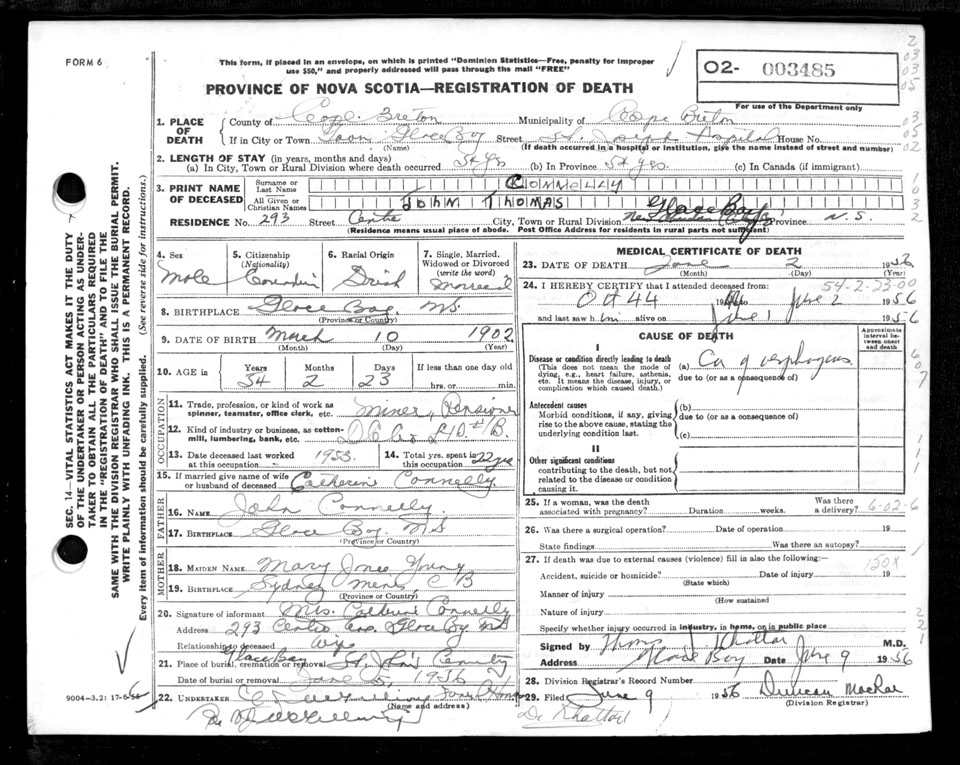 FORM 6
This form, if placed in an envelope, on which is printed "Dominion Statistics—Free, penalty for improper
use $50," and properly addressed will pass through the mail "FREE"
02- 003485
For use of the Department only
PROVINCE OF NOVA SCOTIA—REGISTRATION OF DEATH
1. PLACE OF DEATH County of Cape Breton Municipality of Cape Breton
If in City or Town Town Glace Bay Street St. Joseph Hospital House No.
(Name) (If death occurred in a hospital or institution, give the name instead of street and number)
2. LENGTH OF STAY (in years, months and days)
(a) In City, Town or Rural Division where death occurred 54 yrs (b) In Province 54 yrs. (c) In Canada (if immigrant)
3. PRINT NAME OF DECEASED Surname or Last Name CONNOLLY
All Given or Christian Names JOHN THOMAS
RESIDENCE No. 293 Street Centre City, Town or Rural Division Glace Bay Province N.S.
(Residence means usual place of abode. Post Office Address for residents in rural parts not sufficient)
4. Sex Male
5. Citizenship (Nationality) Canadian
6. Racial Origin Irish
7. Single, Married, Widowed or Divorced (write the word) Married
8. BIRTHPLACE Glace Bay, NS.
(Province or Country)
9. DATE OF BIRTH March 10 1902
(Month) (Day) (Year)
10. AGE in Years 54 Months 2 Days 23 If less than one day old hrs. or min.
OCCUPATION
11. Trade, profession, or kind of work as spinner, teamster, office clerk, etc. Miner, Pensioner
12. Kind of industry or business, as cotton-mill, lumbering, bank, etc.
13. Date deceased last worked at this occupation 1953
14. Total yrs. spent in this occupation 22 yrs
15. If married give name of wife or husband of deceased Catherine Connelly
FATHER
16. NAME John Connelly
17. BIRTHPLACE Glace Bay NS
(Province or Country)
MOTHER
18. MAIDEN NAME Mary Jones Young
19. BIRTHPLACE Sydney Mines C B
(Province or Country)
20. Signature of informant Mrs. Catherine Connelly
Address 293 Centre Ave. Glace Bay NS
Relationship to deceased Wife
21. Place of burial, cremation or removal Glace Bay St. John's Cemetery
Date of burial or removal June 5, 1956
22. UNDERTAKER
(Name and address)
MEDICAL CERTIFICATE OF DEATH
23. DATE OF DEATH June 2 1956
(Month) (Day) (Year)
54-2-23-00
24. I HEREBY CERTIFY that I attended deceased from:
Oct 44 to June 2 1956
and last saw h im alive on June 1 1956
CAUSE OF DEATH
Approximate interval between onset and death
I
Disease or condition directly leading to death
(This does not mean the mode of dying, e.g., heart failure, asthenia, etc. It means the disease, injury, or complication which caused death.)
(a) Ca of esophagus
due to (or as a consequence of)
Antecedent causes
Morbid conditions, if any, giving rise to the above cause, stating the underlying condition last.
(b)
due to (or as a consequence of)
(c)
II
Other significant conditions
contributing to the death, but not related to the disease or condition causing it.
25. If a woman, was the death associated with pregnancy? Duration weeks. Was there a delivery? 6-02-6
26. Was there a surgical operation? Date of operation 19
State findings Was there an autopsy?
27. If death was due to external causes (violence) fill in also the following:— 150X
Accident, suicide or homicide? Date of injury 19
(State which)
Manner of injury
(How sustained
Nature of injury
Specify whether injury occurred in industry, in home, or in public place
Signed by Thomas J Khattar M.D.
Address Glace Bay Date June 9 1956
28. Division Registrar's Record Number
29. Filed June 9 1956 Duncan MacRae
(Division Registrar)
Dr Khattar
9004—3.2: 17-6-54
SEC. 14—VITAL STATISTICS ACT MAKES IT THE DUTY
OF THE UNDERTAKER OR PERSON ACTING AS UNDER-
TAKER TO OBTAIN ALL THE PARTICULARS REQUIRED
IN THE "REGISTRATION OF DEATH" AND TO FILE THE
SAME WITH THE DIVISION REGISTRAR WHO SHALL ISSUE THE BURIAL PERMIT.
WRITE PLAINLY WITH UNFADING INK. THIS IS A PERMANENT RECORD.
Every item of information should be carefully supplied. (See reverse side for instructions.)